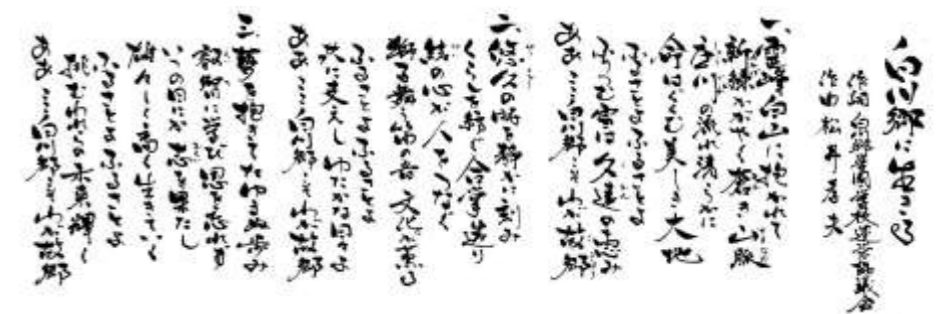 白川郷に生きる
作詞 白川郷学園学校運営協議会
作曲 松井孝夫
一、霊峰白山に抱かれて
新緑かがやく蒼き山脈
庄川の流れ清らかに
命はぐくむ美しき大地
ふるさとよふるさとよ
ふりつむ雪は久遠の恵み
ああ ここ白川郷こそわが故郷
二、悠久の時を静かに刻み
くらしを紡ぐ合掌造り
結の心が人をつなぐ
獅子舞う笛の音 文化が薫る
ふるさとよふるさとよ
共に支えし ゆたかな日々よ
ああ ここ白川郷こそわが故郷
三、夢を抱きてたゆまぬ歩み
叡智に学び 恩を忘れず
いつの日にか志を果たし
雄々しく高く生きていく
ふるさとよふるさとよ
挑むわれらの未来輝く
ああ ここ白川郷こそわが故郷